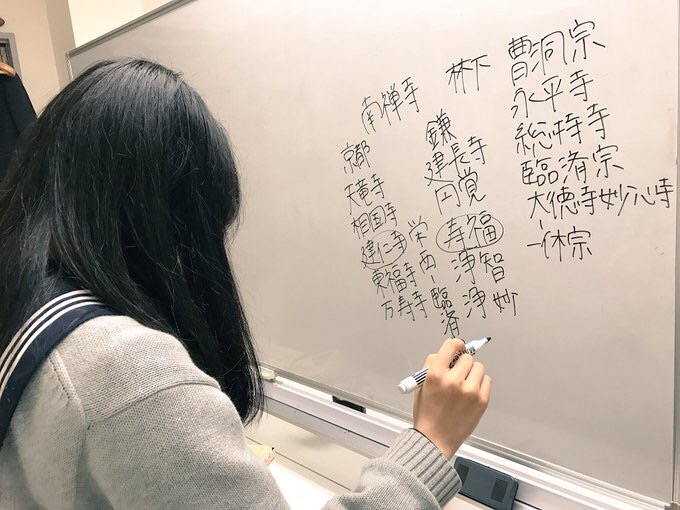 南禅寺
京都
天竜寺
相国寺
建仁寺
東福寺
万寿寺
栄西
臨済
鎌
建長寺
円覚
寿福
浄智
浄妙
林下
曹洞宗
永平寺
総持寺
臨済宗
大徳寺妙心寺
一休宗